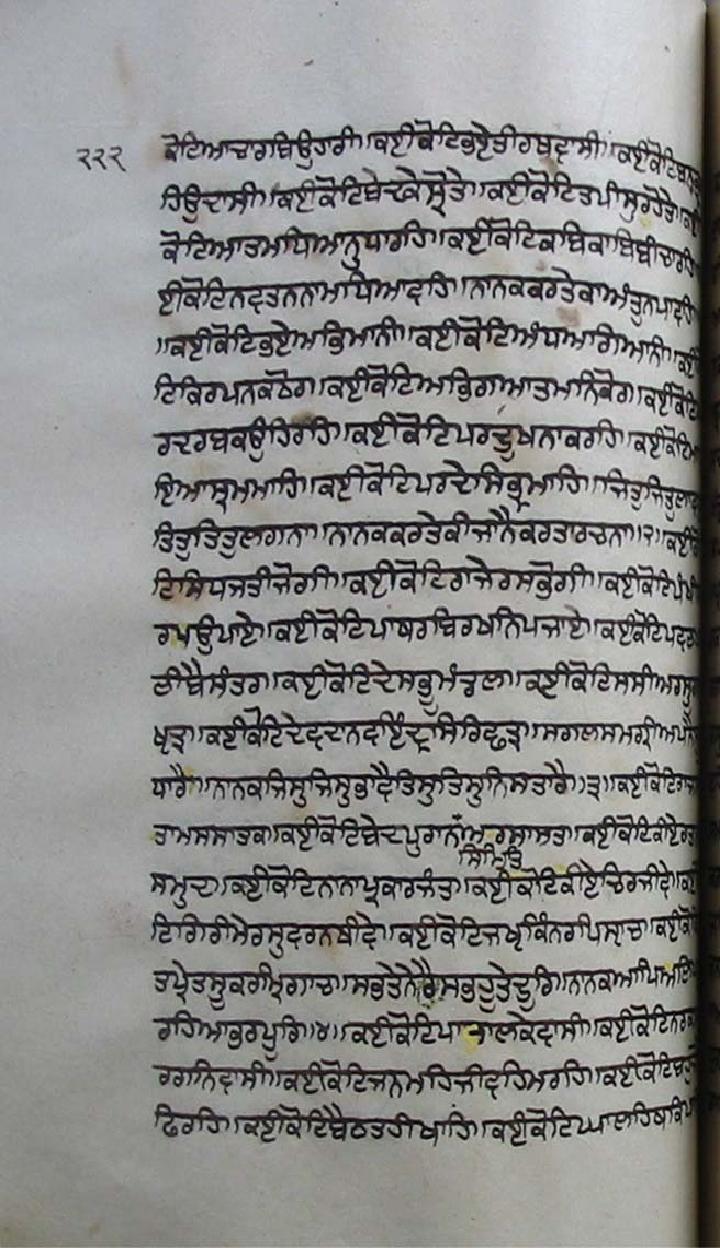 ੨੨੨ ਕੋਟਿਆਚਾਰਬਿਉਹਾਰੀ॥ਕਈਕੋਟਿਭਏਤੀਰਥਵਾਸੀ॥ਕਈਕੋਟਿਬਨ
ਹਿਉਦਾਸੀ॥ਕਈਕੋਟਿਬੇਦਕੇਸ੍ਰੋਤੇ॥ਕਈਕੋਟਿਤਪੀਸੁਰਹੋਤੇ॥ਕਈ
ਕੋਟਿਆਤਮਧਿਆਨੁਧਾਰਹਿ॥ਕਈਕੋਟਿਕਬਿਕਾਬਿਬੀਚਾਰਹਿ
ਈਕੋਟਿਨਵਤਨਨਾਮਧਿਆਵਹਿ॥ਨਾਨਕਕਰਤੇਕਾਅੰਤੁਨਪਾਵਹਿ
॥ਕਈਕੋਟਿਭਏਅਭਿਮਾਨੀ॥ਕਈਕੋਟਿਅੰਧਅਗਿਆਨੀ॥ਕਈ
ਟਿਕਿਰਪਨਕਠੋਰ॥ਕਈਕੋਟਿਅਭਿਗਆਤਮਨਿਕੋਰ॥ਕਈਕੋਟਿ
ਰਦਰਬਕਉਹਿਰਹਿ॥ਕਈਕੋਟਿਪਰਦੂਖਨਾਕਰਹਿ॥ਕਈਕੋਟਿਮਾ
ਇਆਸ੍ਰਮਮਾਹਿ॥ਕਈਕੋਟਿਪਰਦੇਸਿਭ੍ਰਮਾਹਿ॥ਜਿਤੁਜਿਤੁਲਾਵ
ਤਿਤੁਤਿਤੁਲਗਨਾ॥ਨਾਨਕਕਰਤੇਕੀਜਾਨੈਕਰਤਾਰਚਨਾ॥੨॥ਕਈਕੋ
ਟਿਸਿਧਜਤੀਜੋਗੀ॥ਕਈਕੋਟਿਰਾਜੇਰਸਭੋਗੀ॥ਕਈਕੋਟਿਪੰਖੀ
ਰਪਉਪਾਏ॥ਕਈਕੋਟਿਪਾਥਰਬਿਰਖਨਿਪਜਾਏ॥ਕਈਕੋਟਿਪਵਣ
ਈਕੋਟਿਦੇਸਭੂਮੰਡਲ॥ਕਈਕੋਟਿਸਸੀਅਰਸੂਰ
ਖ੍ਯਤ੍ਰ॥ਕਈਕੋਟਿਦੇਵਦਾਨਵਇੰਦ੍ਰਸਿਰਿਛਤ੍ਰ॥ਸਗਲਸਮਗ੍ਰੀਅਪਨੈ
ਧਾਰੈ॥ਨਾਨਕਜਿਸੁਜਿਸੁਭਾਵੈਤਿਸੁਤਿਸੁਨਿਸਤਾਰੈ॥੩॥ਕਈਕੋਟਿਰਾਜ
ਤਾਮਸਸਾਤਕ॥ਕਈਕੋਟਿਬੇਦਪੁਰਾਨ ਅਰਸਾਸਤ॥ਕਈਕੋਟਿਕੀਏਰਤਨ
ਸਿਮ੍ਰਿਤਿ
ਸਮੁਦ॥ਕਈਕੋਟਿਨਾਨਾਪ੍ਰਕਾਰਜੰਤ॥ਕਈਕੋਟਿਕੀਏਚਿਰਜੀਵੇ॥ਕਈ
ਟਿਗਿਰੀਮੇਰਸੁਵਰਨਥੀਵੇ॥ਕਈਕੋਟਿਜਖ੍ਯਕਿੰਨਰਪਿਸਾਚ॥ਕਈਕੋ
ਤਪ੍ਰੇਤਸੂਕਰਮ੍ਰਿਗਾਚ॥ਸਭਤੇਨੇਰੈਸਭਹੂਤੇਦੂਰਿ॥ਨਾਨਕਆਪਿਅਲਿ
ਰਹਿਆਭਰਪੂਰਿ॥੪॥ਕਈਕੋਟਿਪਾਤਾਲਕੇਵਾਸੀ॥ਕਈਕੋਟਿਨਰਕ
ਰਗਨਿਵਾਸੀ॥ਕਈਕੋਟਿਜਨਮਹਿਜੀਵਹਿਮਰਹਿ॥ਕਈਕੋਟਿਬਹੁ
ਫਿਰਹਿ॥ਕਈਕੋਟਿਬੈਠਤਹੀਖਾਹਿ॥ਕਈਕੋਟਿਘਾਲਹਿਥਕਿਪਾ